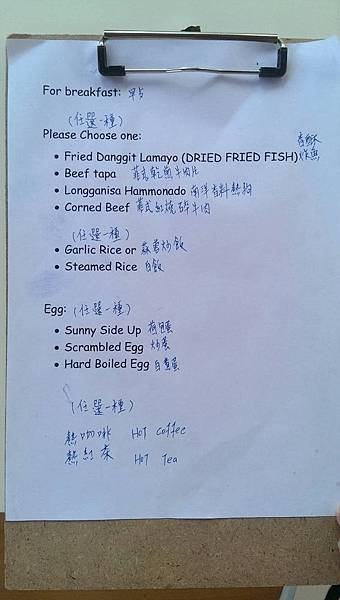 For breakfast: 早点
(任選一種)
Please Choose one:
香酥
Fried Danggit Lamayo (DRIED FRIED FISH) 炸魚
Beef tapa 菲式乾煎牛肉片
Longganisa Hammonado 南洋香料熱狗
Corned Beef 菲式紅燒碎牛肉
(任選一種)
Garlic Rice or 蒜蓉炒飯
Steamed Rice 白飯
Egg: (任選一種)
Sunny Side Up 荷包蛋
Scrambled Egg 炒蛋
Hard Boiled Egg 白煮蛋
(任選一種)
熱咖啡 Hot Coffee
熱紅茶 Hot Tea